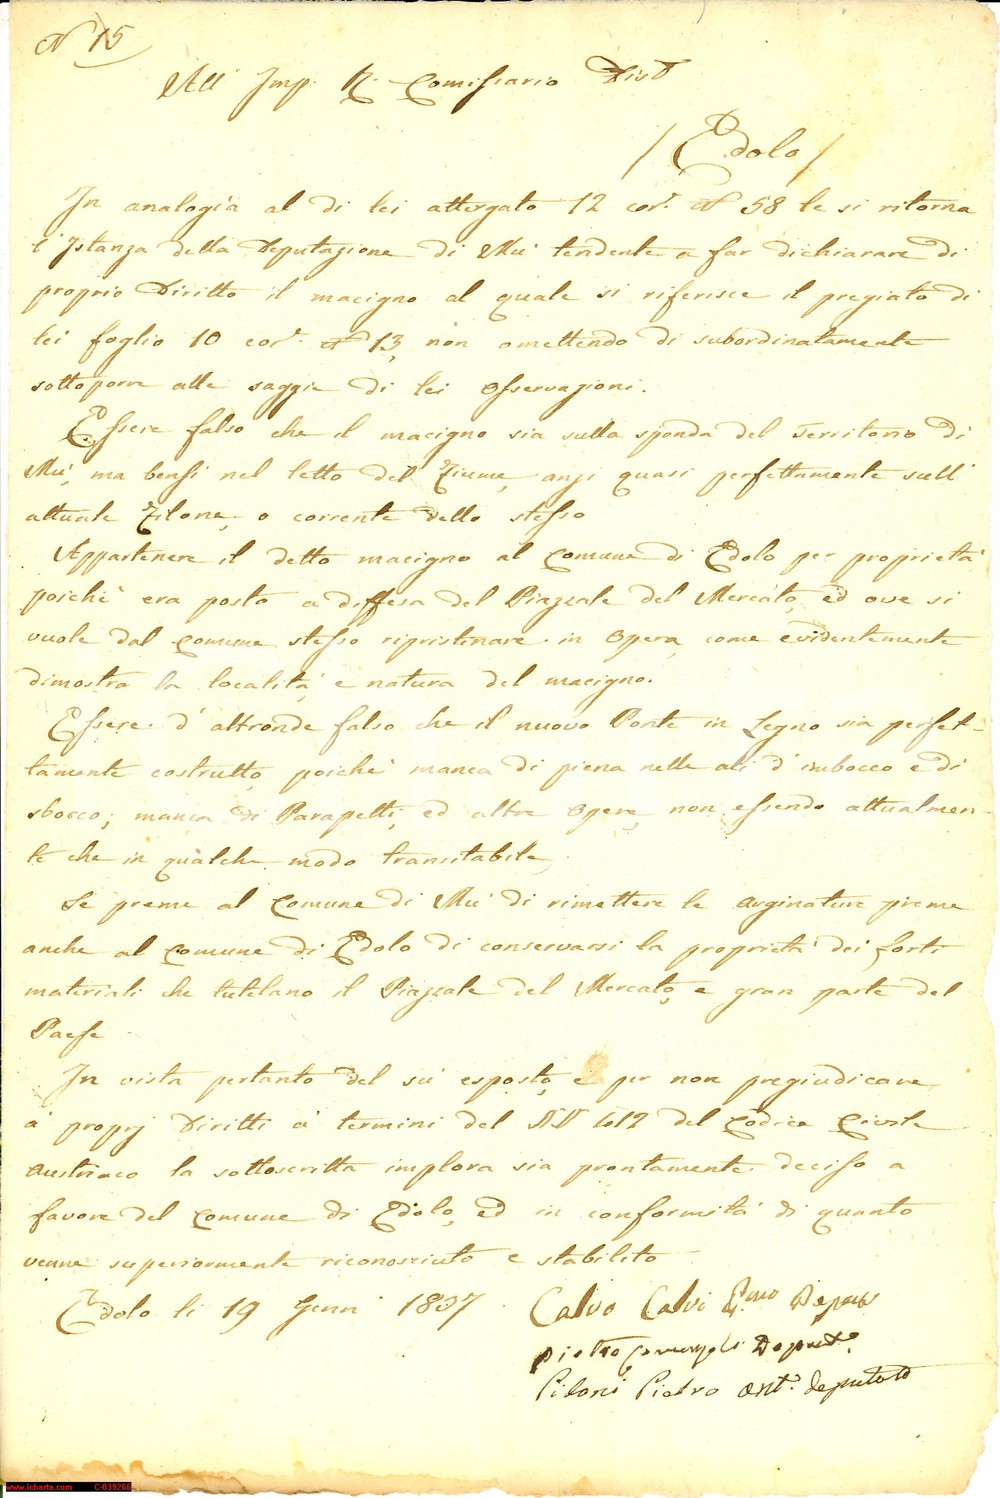 N 15
All' Imp. R. Comissario Dist
/ Edolo /
In analogia al di lei attergato 12 cor. N 58 le si ritorna
l'Istanza della Deputazione di Mù tendente a far dichiarare di
proprio Diritto il macigno al quale si riferisce il pregiato di
lei foglio 10 cor. N 13, non omettendo di subordinatamente
sottoporre alle saggie di lei osservazioni.
Essere falso che il macigno sia sulla sponda del Territorio di
Mù, ma bensi nel letto del Fiume, anzi quasi perfettamente sull'
attuale Filone, o corrente dello stesso
Appartenere il detto macigno al Comune di Edolo per proprietà
poichè era posto a diffesa del Piazzale del Mercato, ed ove si
vuole dal Comune stesso ripristinare in opera, come evidentemente
dimostra la località, e natura del macigno.
Essere d'altronde falso che il nuovo Ponte in Legno sia perfet-
tamente costrutto, poichè manca di piena nelle ali d'imbocco e di
sbocco; manca di Parapetti, ed altre opere, non essendo attualmen-
te che in qualche modo transitabile,
Se preme al Comune di Mù di rimettere le arginature preme
anche al Comune di Edolo di conservarsi la proprietà dei forti
materiali che tutelano il Piazzale del Mercato, e gran parte del
Paese
In vista pertanto del sù esposto, e per non pregiudicare
à proprj Diritti à termini del 412 del Codice Civile
Austriaco la sottoscritta implora sia prontamente deciso a
favore del Comune di Edolo, ed in conformità di quanto
venne superiormente riconosciuto e stabilito
Edolo li 19 Genn 1837
Calvo Calvi Deput
Pietro Deput.
Piloni Pietro deputato
www.icharta.com C-039266